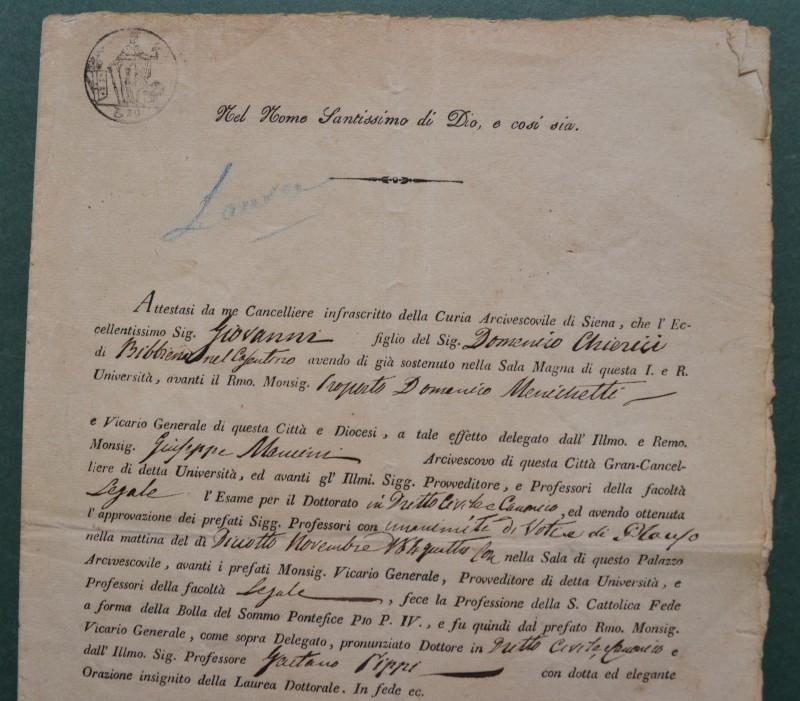 Nel Nome Santissimo di Dio, e così sia.
Laurea
Attestasi da me Cancelliere infrascritto della Curia Arcivescovile di Siena, che l' Ec-
cellentissimo Sig. Giovanni figlio del Sig. Domenico Chierici
di Bibbiena nel Casentino avendo di già sostenuto nella Sala Magna di questa I. e R.
Università, avanti il Rmo. Monsig. Proposto Domenico Menichetti
e Vicario Generale di questa Città e Diocesi, a tale effetto delegato dall' Illmo. e Remo.
Monsig. Giuseppe Mancini Arcivescovo di questa Città Gran-Cancel-
liere di detta Università, ed avanti gl' Illmi. Sigg. Provveditore, e Professori della facoltà
Legale l' Esame per il Dottorato in Dritto Civile e Canonico, ed avendo ottenuta
l' approvazione dei prefati Sigg. Professori con unanimità di Voti e di Plauso
nella mattina del dì Diciotto Novembre nella Sala di questo Palazzo
Arcivescovile, avanti i prefati Monsig. Vicario Generale, Provveditore di detta Università, e
Professori della facoltà Legale, fece la Professione della S. Cattolica Fede
a forma della Bolla del Sommo Pontefice Pio P. IV., e fu quindi dal prefato Rmo. Monsig.
Vicario Generale, come sopra Delegato, pronunziato Dottore in Dritto Civile, e Canonico e
dall' Illmo. Sig. Professore Gaetano Pippi con dotta ed elegante
Orazione insignito della Laurea Dottorale. In fede ec.